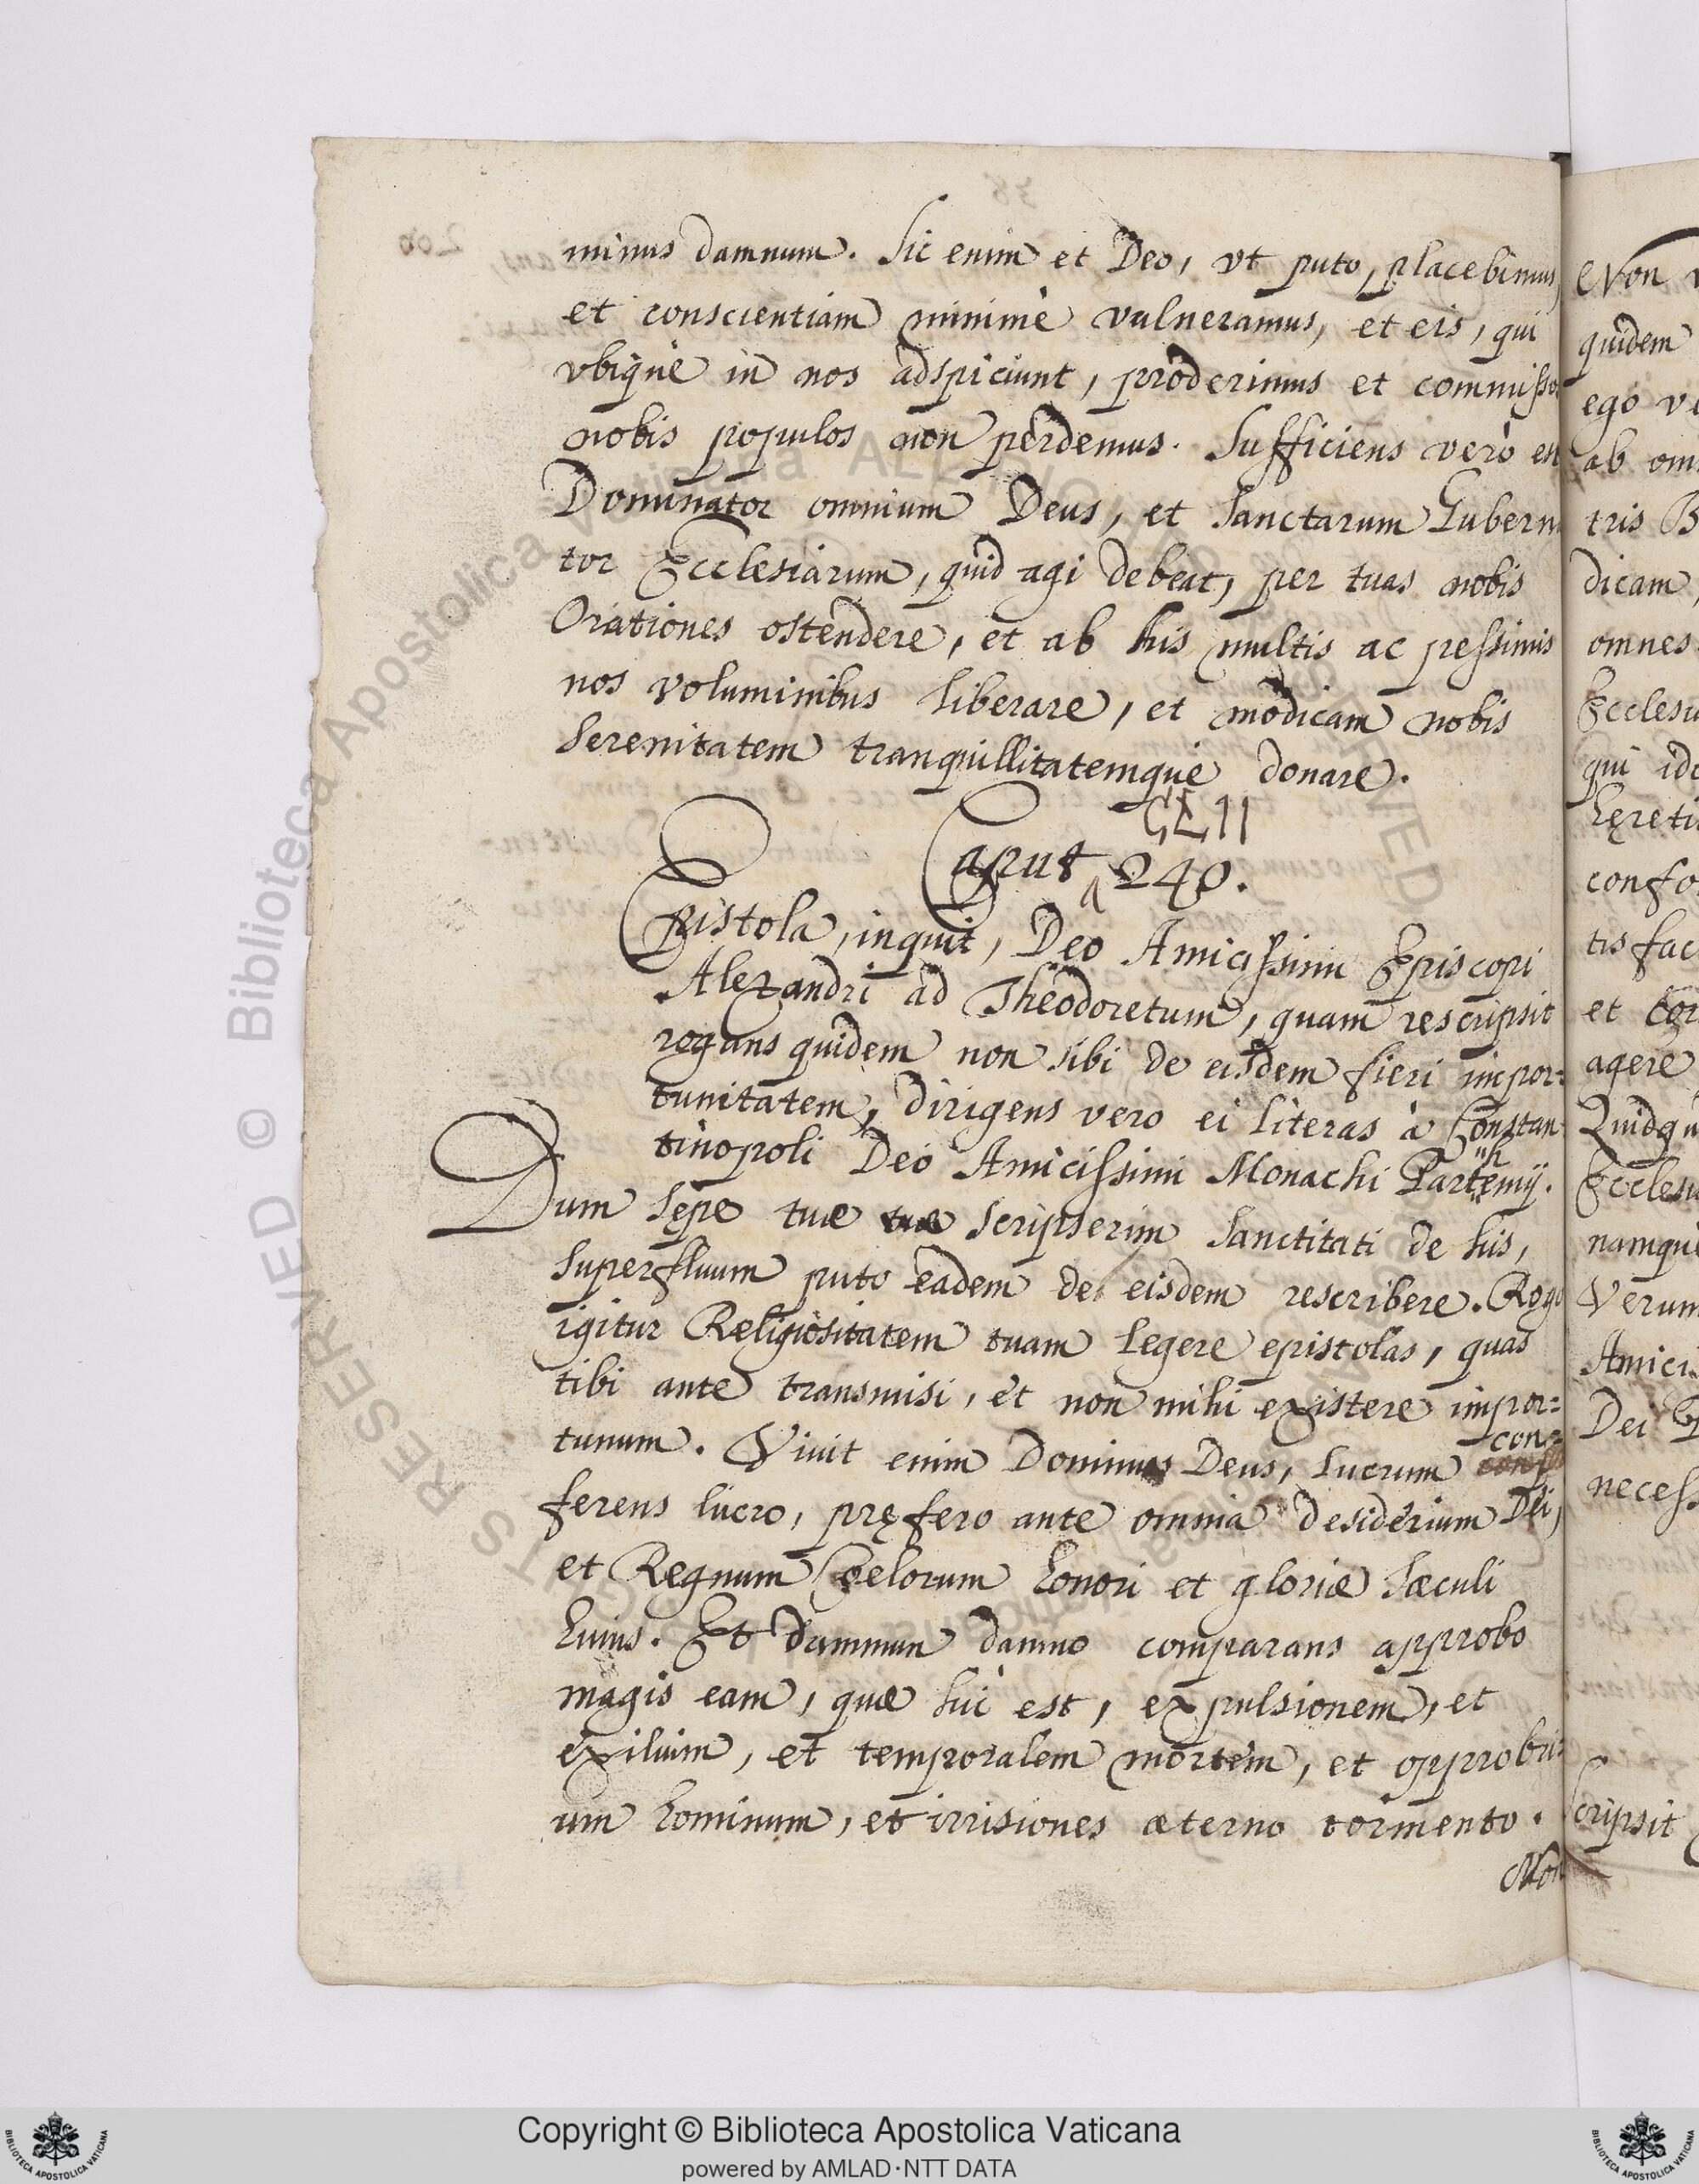 minus damnum. Sic enim et Deo, vt puto, placebimus,
et conscientiam minimè vulneramus, et eis, qui
vbique in nos adspiciunt, proderimus et commisso
nobis populos non perdemus. Sufficiens verò est
Dominator omnium Deus, et Sanctarum Guberna
tor Ecclesiarum, quid agi debeat, per tuas nobis
Orationes ostendere, et ab his multis ac pessimis
nos voluminibus liberare, et modicam nobis
Serenitatem tranquillitatemque donare.
CLII
Caput 240.
Epistola, inquit, Deo Amicissimi Episcopi
Alexandri ad Theodoretum, quam rescripsit
rogans quidem non sibi de eisdem fieri impor=
tunitatem, dirigens vero ei literas à Constan
tinopoli Deo Amicissimi Monachi Partemij.
h
Dum sępe tuæ tuæ scripserim Sanctitati de his,
superfluum puto eadem de eisdem rescribere. Rogo
igitur Religiositatem tuam legere epistolas, quas
tibi ante transmisi, et non mihi existere impor=
tunum. Viuit enim Dominus Deus, lucrum con=
ferens lucro, pręfero ante omnia desiderium Dei,
et Regnum Cœlorum honori et gloriæ sæculi
huius. Et damnum damno comparans approbo
magis eam, quæ hic est, expulsionem, et
exilium, et temporalem mortem, et opprobri=
um hominum, et irrisiones æterno tormento.
Non
Non
quidem
ego
ab
tris
dicam,
omnes
qui
et
agere
namque
Verum
Dei
Copyright © Biblioteca Apostolica Vaticana
powered by AMLAD·NTT DATA